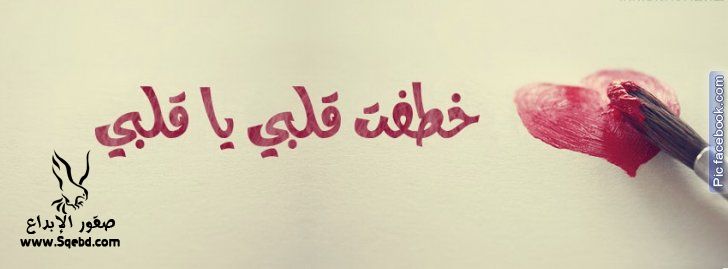 خطفت قلبي يا قلبي
صقور الإبداع
www.Sqebd.com
Pic facebook.com